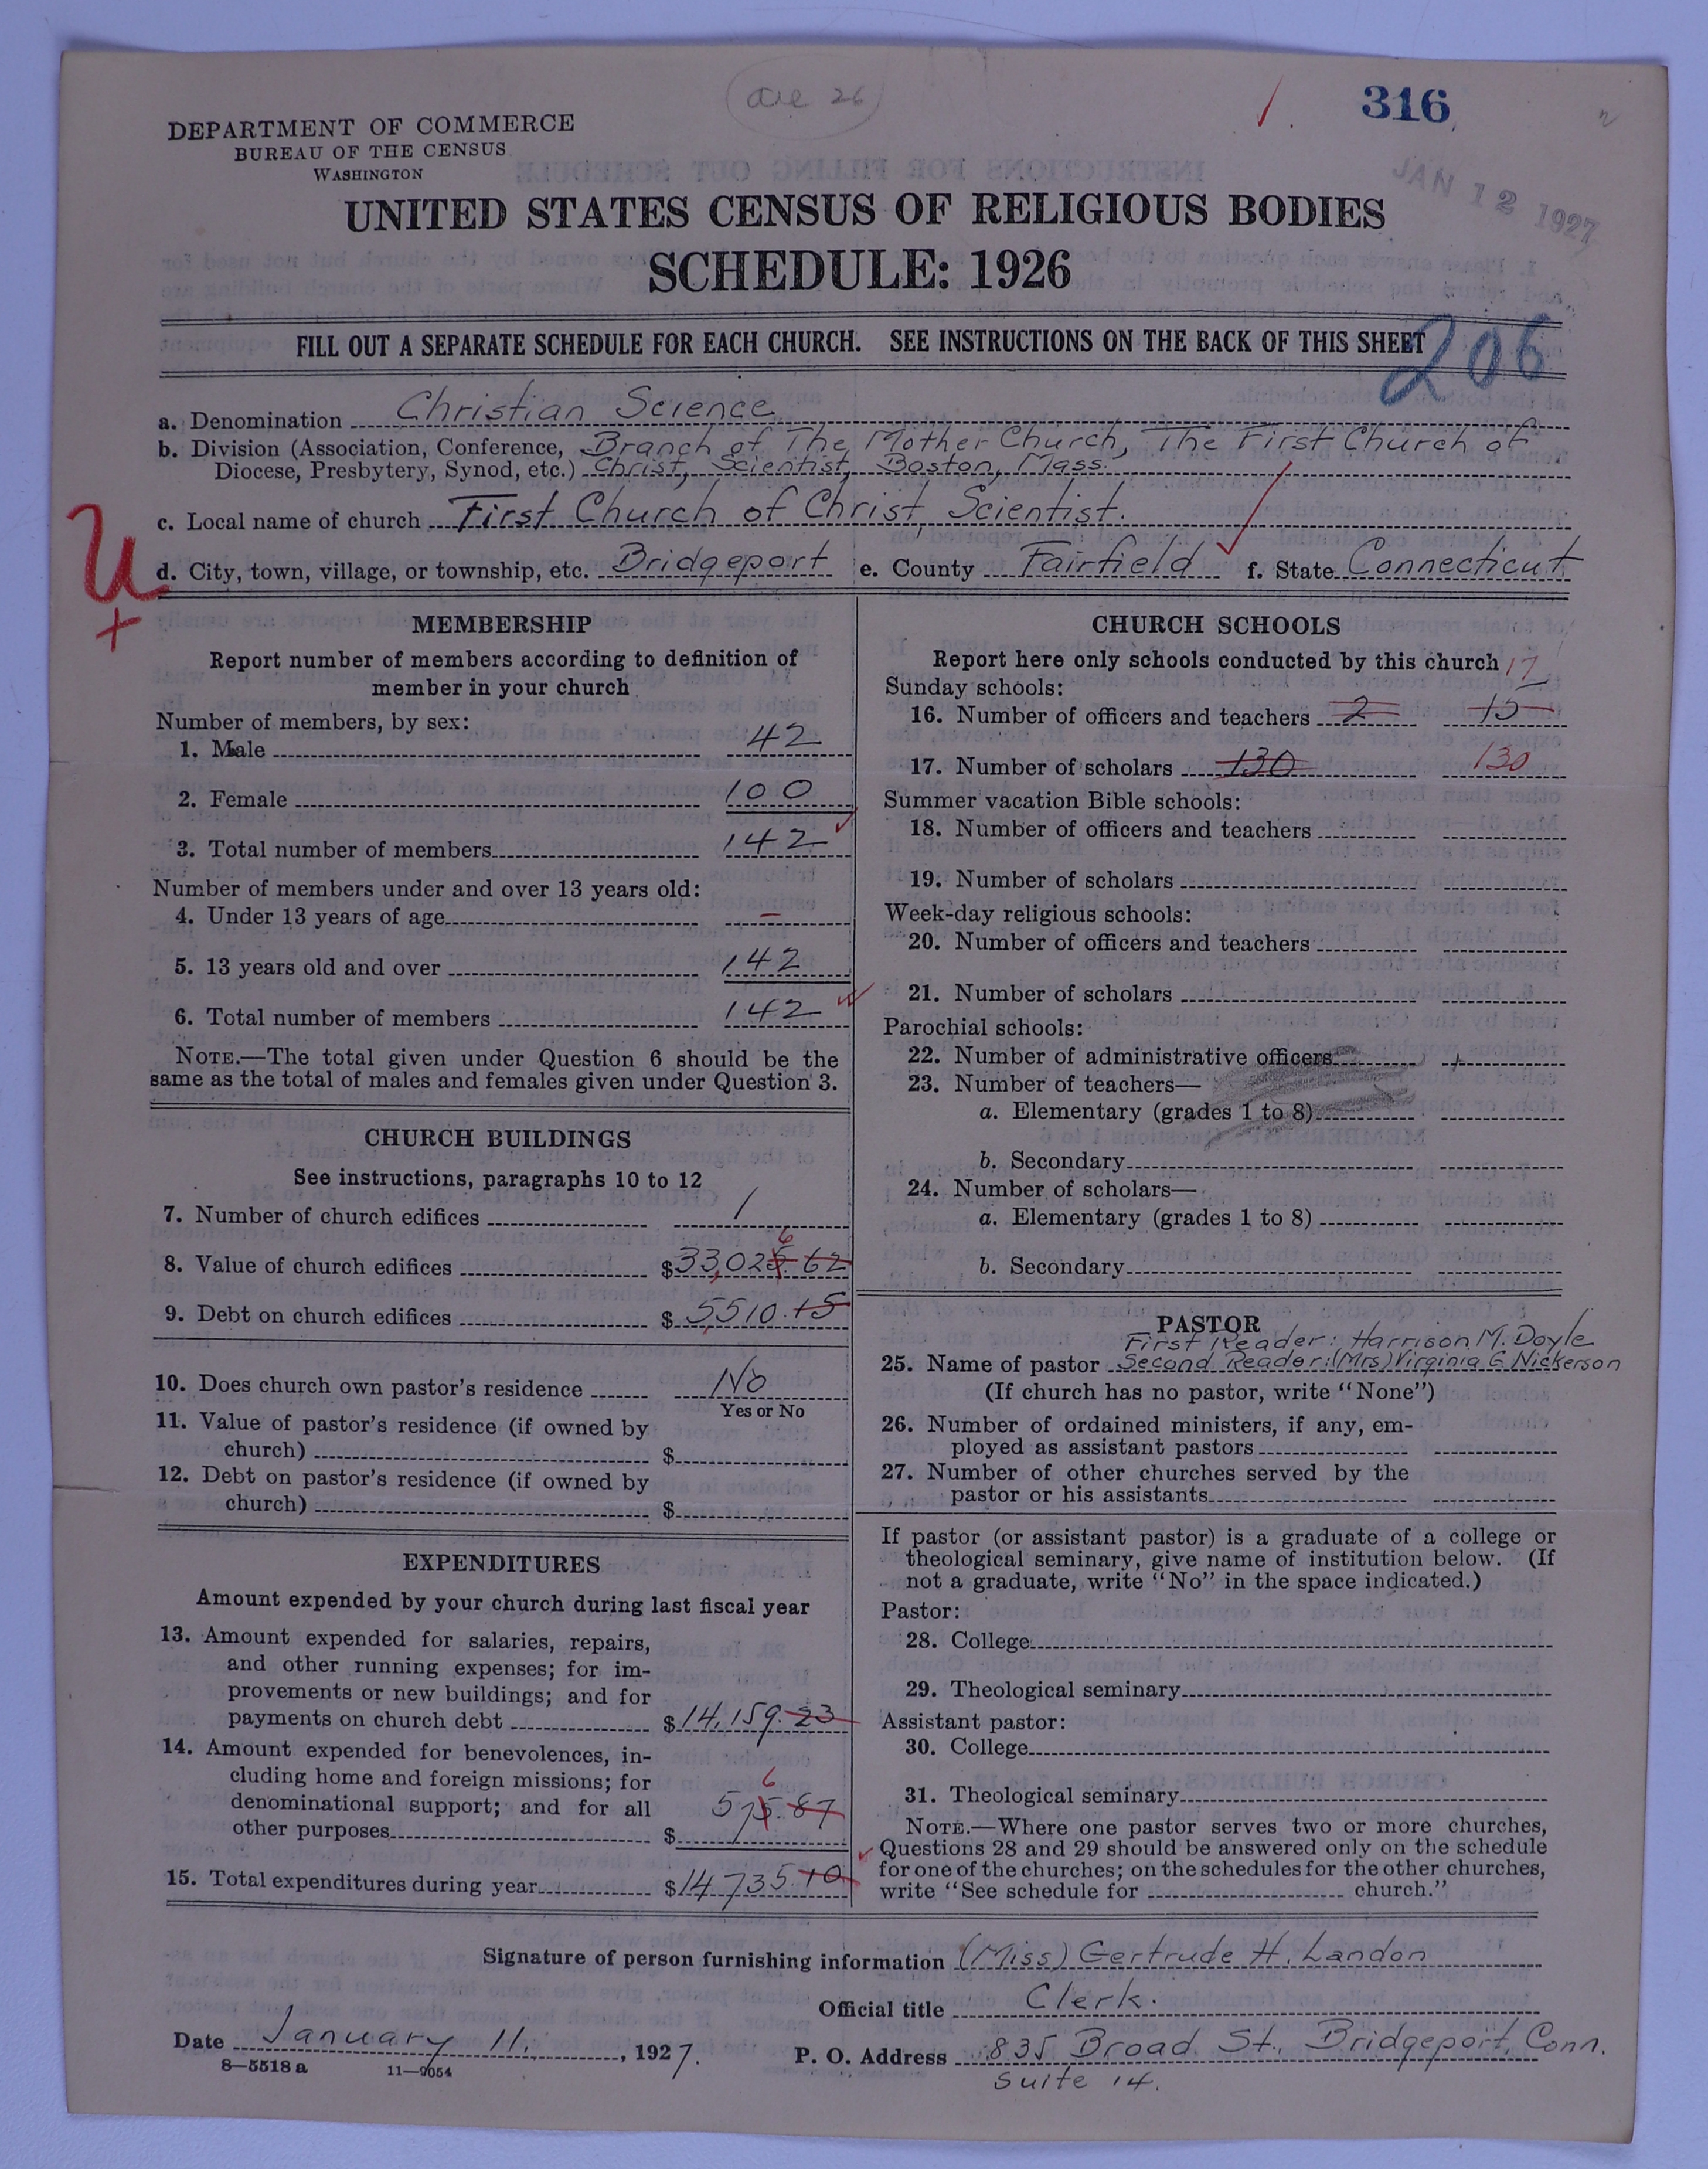 316
DEPARTMENT OF COMMERCE
BUREAU OF THE CENSUS
WASHINGTON
JAN 12 1927
UNITED STATES CENSUS OF RELIGIOUS BODIES
SCHEDULE: 1926
FILL OUT A SEPARATE SCHEDULE FOR EACH CHURCH. SEE INSTRUCTIONS ON THE BACK OF THIS SHEET
206
a. Denomination Christian Science
b. Division (Association, Conference, Branch of The Mother Church, The First Church of
Diocese, Presbytery, Synod, etc.) Christ, Scientist, Boston, Mass.
c. Local name of church First Church of Christ, Scientist.
d. City, town, village, or township, etc. Bridgeport e. County Fairfield f. State Connecticut
U
+
MEMBERSHIP
Report number of members according to definition of
member in your church
Number of members, by sex:
1. Male 42
2. Female 100
3. Total number of members 142
Number of members under and over 13 years old:
4. Under 13 years of age –
5. 13 years old and over 142
6. Total number of members 142
NOTE.—The total given under Question 6 should be the
same as the total of males and females given under Question 3.
CHURCH BUILDINGS
See instructions, paragraphs 10 to 12
7. Number of church edifices 1
6
8. Value of church edifices $33,025.62
9. Debt on church edifices $5,510.15
10. Does church own pastor's residence No
Yes or No
11. Value of pastor's residence (if owned by
church) $
12. Debt on pastor's residence (if owned by
church) $
EXPENDITURES
Amount expended by your church during last fiscal year
13. Amount expended for salaries, repairs,
and other running expenses; for im-
provements or new buildings; and for
payments on church debt $14,159.23
14. Amount expended for benevolences, in-
cluding home and foreign missions; for
6
denominational support; and for all 575.87
other purposes $
15. Total expenditures during year $14735.10
CHURCH SCHOOLS
Report here only schools conducted by this church 17
Sunday schools:
16. Number of officers and teachers 2 15
17. Number of scholars 130 130
Summer vacation Bible schools:
18. Number of officers and teachers
19. Number of scholars
Week-day religious schools:
20. Number of officers and teachers
21. Number of scholars
Parochial schools:
22. Number of administrative officers
23. Number of teachers—
a. Elementary (grades 1 to 8)
b. Secondary
24. Number of scholars—
a. Elementary (grades 1 to 8)
b. Secondary
PASTOR
First Reader: Harrison M. Doyle
25. Name of pastor Second Reader: (Mrs) Virginia G. Nickerson
(If church has no pastor, write "None")
26. Number of ordained ministers, if any, em-
ployed as assistant pastors
27. Number of other churches served by the
pastor or his assistants
If pastor (or assistant pastor) is a graduate of a college or
theological seminary, give name of institution below. (If
not a graduate, write "No" in the space indicated.)
Pastor:
28. College
29. Theological seminary
Assistant pastor:
30. College
31. Theological seminary
NOTE.—Where one pastor serves two or more churches,
Questions 28 and 29 should be answered only on the schedule
for one of the churches; on the schedules for the other churches,
write "See schedule for church."
Signature of person furnishing information (Miss) Gertrude H. Landon
Official title Clerk.
Date January 11, 1927.
P. O. Address 835 Broad St., Bridgeport, Conn.
Suite 14.
8—5518 a 11—9054